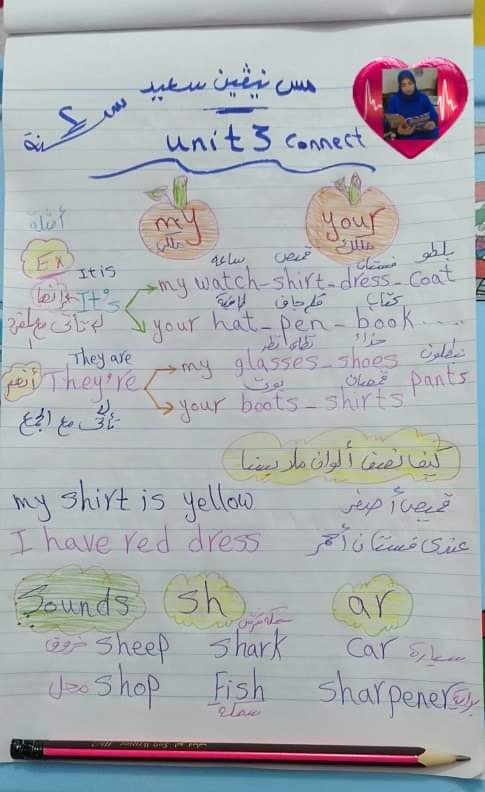 مس نيڤين سعيد
سنة ٤
unit 3 connect
my your
ملكي ملكك
أمثلة
Ex
ساعة قميص فستان بالطو
It is
إنها It's my watch - shirt - dress - coat
قلم جاف كتاب
your hat - pen - book ....
نظارة نظر حذاء بنطلون
They are
أنهم They're my glasses - shoes pants
بوت قمصان
your boots - shirts
تأتى مع الجمع
كيف نصف ألوان ملابسنا
my shirt is yellow قميصى أصفر
I have red dress عندى فستان أحمر
Sounds sh ar
سمكة قرش
خروف sheep shark car سيارة
محل shop Fish sharpener براية
سمكة